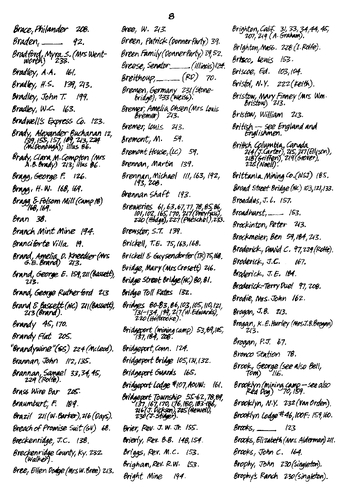 8
Brace, Philander 208.
Braden, ____ 92.
Bradford, Myra S. (Mrs Went-
worth) 233.
Bradley, A.A. 161.
Bradley, H.S. 139, 213.
Bradley, John T. 199.
Bradley, W.C. 163.
Bradwell's Express Co. 123.
Brady, Alexander Buchanan 12,
Brady, Clara M. Compton (Mrs
A.B. Brady) 213; illus 86.
Bragg, George F. 126.
Bragg, H.W. 168, 169.
Bragg & Folsom (Mill Camp 18)
168, 169.
Bran 38.
Branch Mint Mine 194.
Branciforte Villa 19.
Brand, Amelia D. Kneebler (Mrs
G.B. Brand) 213.
Brand, George E. 159, 211 (Bassett),
213.
Brand, George Rutherford 213
Brand & Bassett (NC) 211 (Bassett)
213 (Brand).
Brandy 45, 170.
Brandy Flat 205.
Brandywine 224 (McLeod).
Brannan, John 112, 135.
Brannan, Samuel 33, 34, 45,
224 (Rolfe).
Brass Wire Bar 205.
Braumburt, P. 189.
Brazil 211 (W. Barter), 216 (Days).
Breach of Promise Suit (GV) 68.
Breckenridge, J.C. 138.
Breckenridge County, Ky. 232
(Walker).
Bree, Ellen Dodge (Mrs W. Bree) 213.
Bree, W. 213.
Breen, Patrick (Donner Party) 39.
Breen Family (Donner Party) 39, 52.
Breese, Senator ____ (Illinois) 124.
Breithoup, ____ (RD) 70.
Bremen, Germany 231 (Stone-
bridge), 233 (Weiss).
Bremer, Amelia Olsen (Mrs Louis
Bremer) 213.
Bremer, Louis 213.
Bremont, M. 59.
Bremont House, (GC) 59.
Brennan, Martin 139.
Brennan, Michael 111, 163, 192,
193, 208.
Brennan Shaft 193.
Breweries 61, 63, 67, 77, 78, 85, 86,
Brewster, S.T. 139.
Brickell, T.E. 75, 163, 168.
Brickell & Guysendorfer (TD) 75, 168.
Bridge, Mary (Mrs Crosett) 216.
Bridge Street Bridge (NC) 80, 81.
Bridge Toll Rates 132.
Bridges 80-83, 86, 103, 105, 110, 121,
131-134, 199, 217 (W. Edwards),
Bridgeport (mining camp) 53, 89, 105,
Bridgeport, Conn. 124.
Bridgeport Bridge 105, 121, 132.
Bridgeport Guards 165.
Bridgeport Lodge #107, AOUW: 161.
Bridgeport Township 55-62, 78, 89,
Brier, Rev. J.W. Jr. 155.
Brierly, Rev. B.B. 148, 154.
Briggs, Rev. M.C. 153.
Brigham, Rev. R.W. 153.
Bright Mine 194.
Brighton, Calif. 31, 33, 34, 44, 45,
207, 219 (A. Graham).
Brighton, Mass. 228 (I. Rolfe).
Brisco, Lewis 153.
Briscoe, Ed. 103, 104.
Bristol, N.Y. 222 (Keith).
Bristow, Mary Finney (Mrs. Wm.
Bristow) 213.
Bristow, William 213.
British — see England and
Englishmen.
British Columbia, Canada
Brittania Mining Co. (NSJ) 185.
Broad Street Bridge (NC) 83, 121, 133.
Broaddus, J.L. 157.
Broadhurst, ____ 153.
Brockinton, Peter 213.
Brockmeier, Ben 59, 184, 213.
Broderick, David C. 97, 229 (Rolfe).
Broderick, J.C. 167.
Broderick, J.E. 184.
Broderick-Terry Duel 97, 208.
Brodie, Mrs. John 162.
Brogan, J.B. 213.
Brogan, K.E. Hurley (Mrs J.B. Brogan)
213.
Brogan, P.J. 67.
Bronco Station 78.
Brook, George (see also Bell,
Tom) 116.
Brooklyn (mining camp — see also
Red Dog) 70, 159.
Brooklyn, N.Y. 232 (Van Orden).
Brooklyn Lodge #46, IOOF: 159, 160.
Brooks, ____ 123
Brooks, Elizabeth (Mrs Alderman) 211.
Brooks, John C. 164.
Brophy, John 230 (Singleton).
Brophy's Ranch 230 (Singleton).